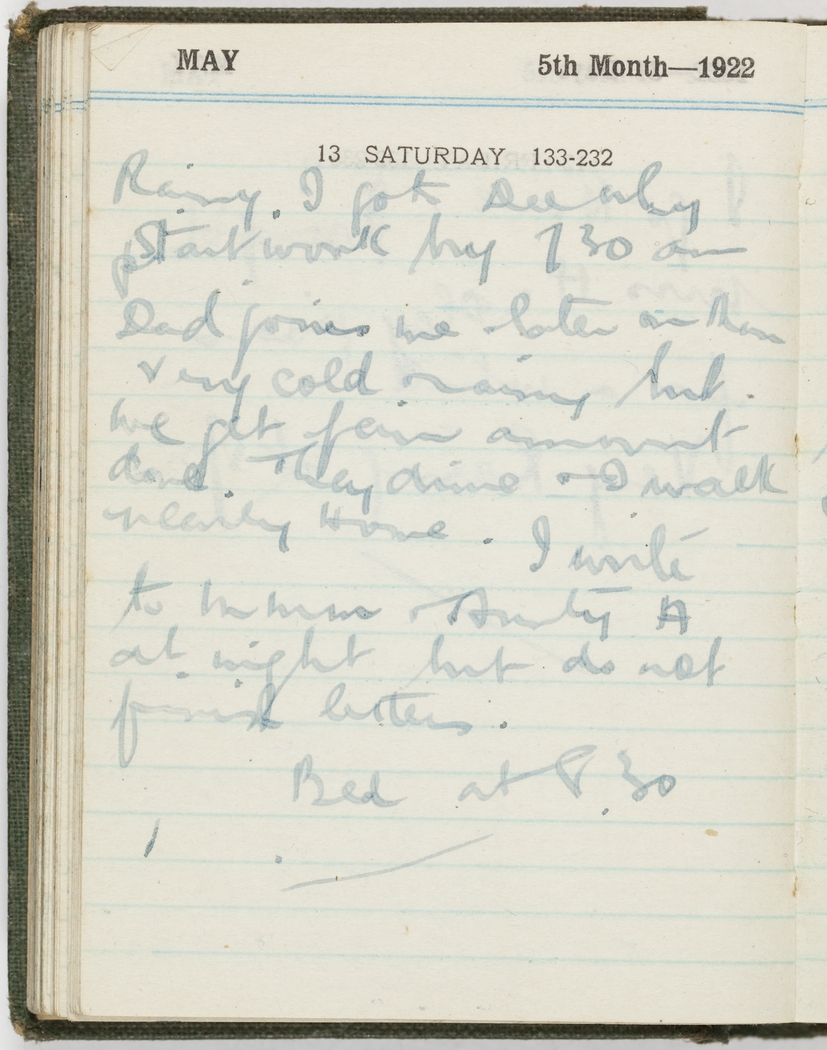 MAY 5th Month—1922
13 SATURDAY 133-232
Rainy. I got
start work by 7 30 am
Dad joins me later on
very cold & rainy but
we get fair amount
done. They drive & I walk
nearly Home. I write
to Mumm & Aunty A
at night but do not
finish letters.
Bed at 8.30